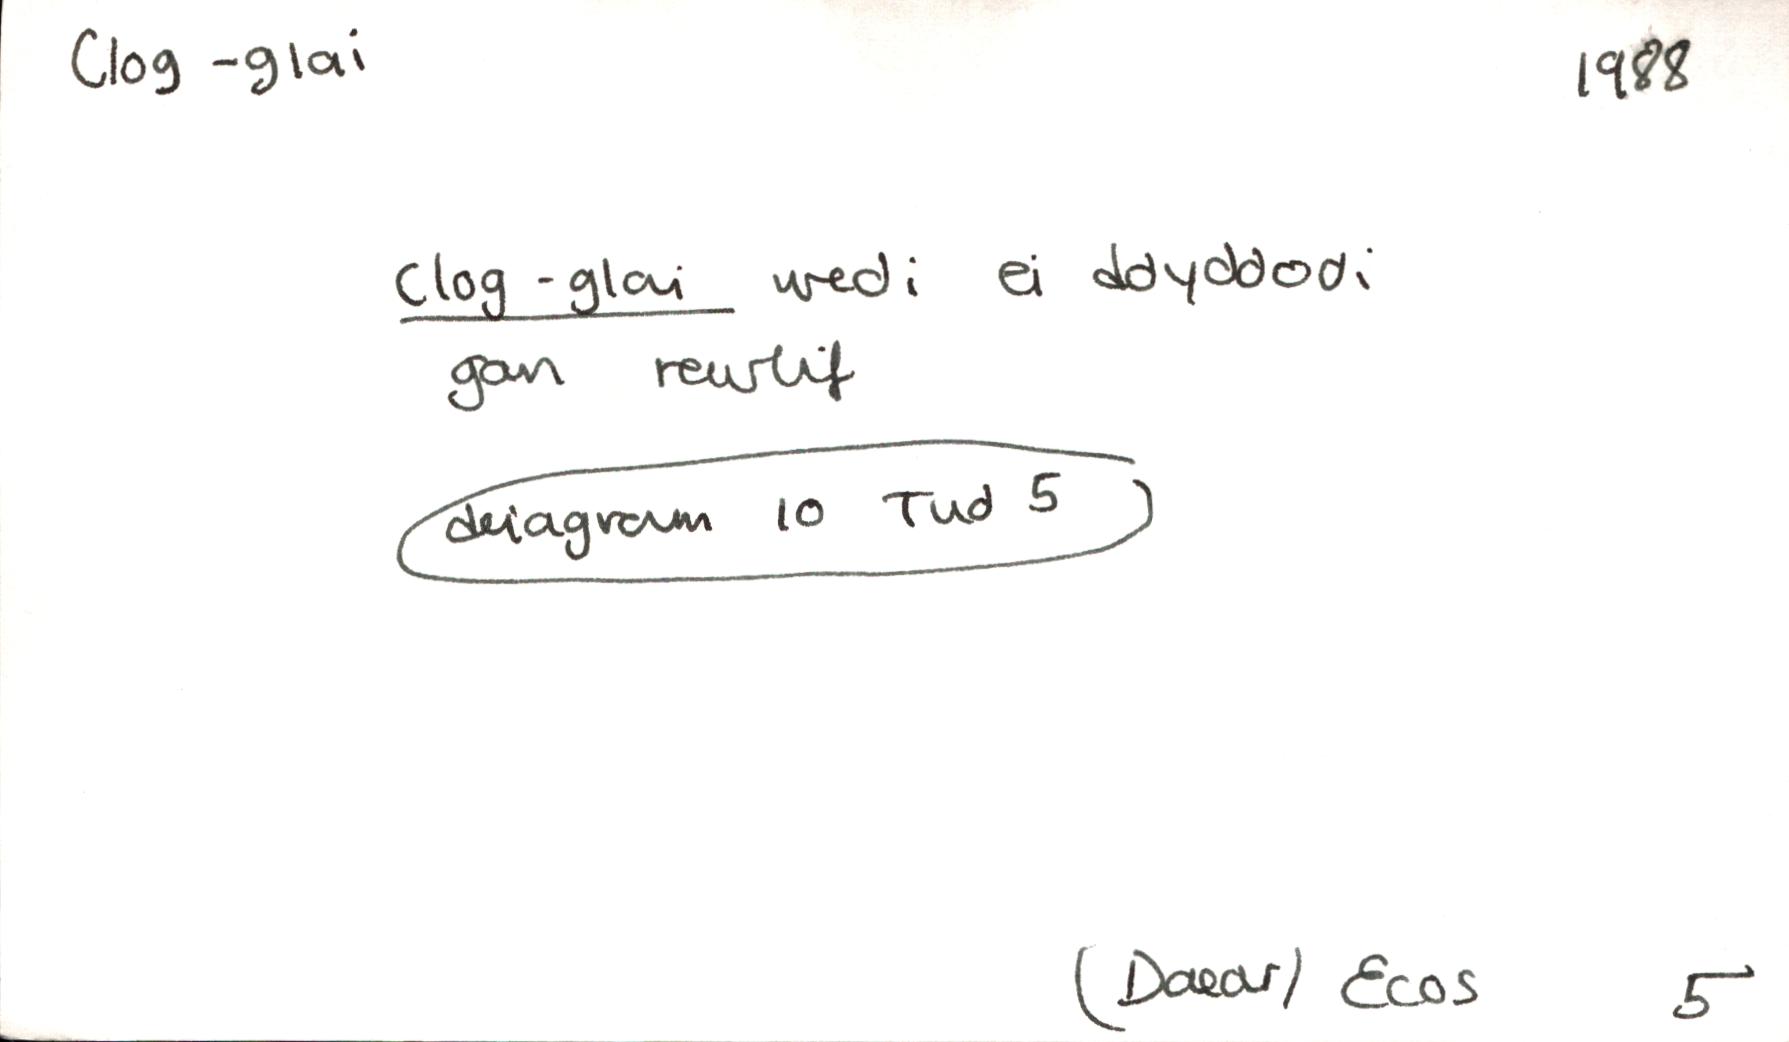 Clog-glai 1988
Clog-glai wedi ei ddyddodi
gan rewlif
deiagram 10 Tud 5
(Daear) Ecos 5